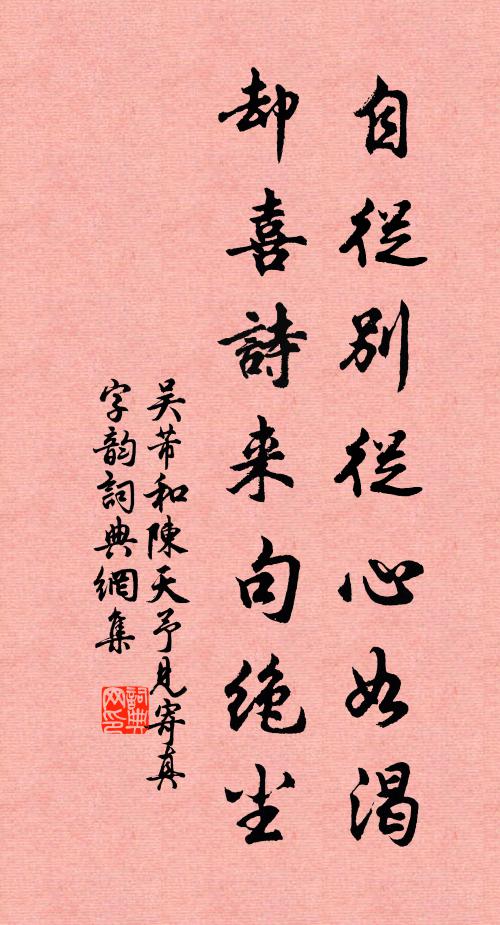 自從別從心如渴
却喜詩来句绝尘
吴芾和陳天予見寄真
字韵詞典網集
詞典网印